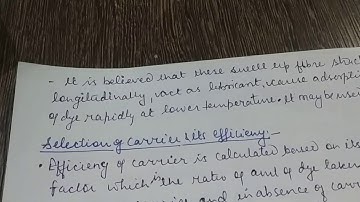 - It is believed that these swell up fibre
longitudinally, act as lubricant, cause adsorption
of dye rapidly at lower temperature. It may be used
Selection of carrier & its efficiency:-
• Efficieny of carrier is calculated based on its
factor which is the ratio of amt of dye taken
and in absence of